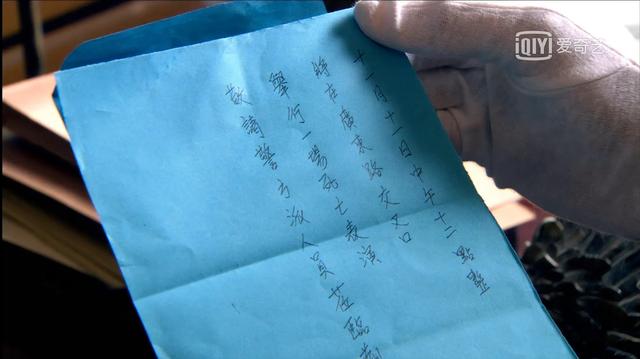 iQIYI 爱奇艺
十一月十一日中午十二點整
將在廣東路交叉口
舉行一場死亡表演
敬請警方派人員莅臨